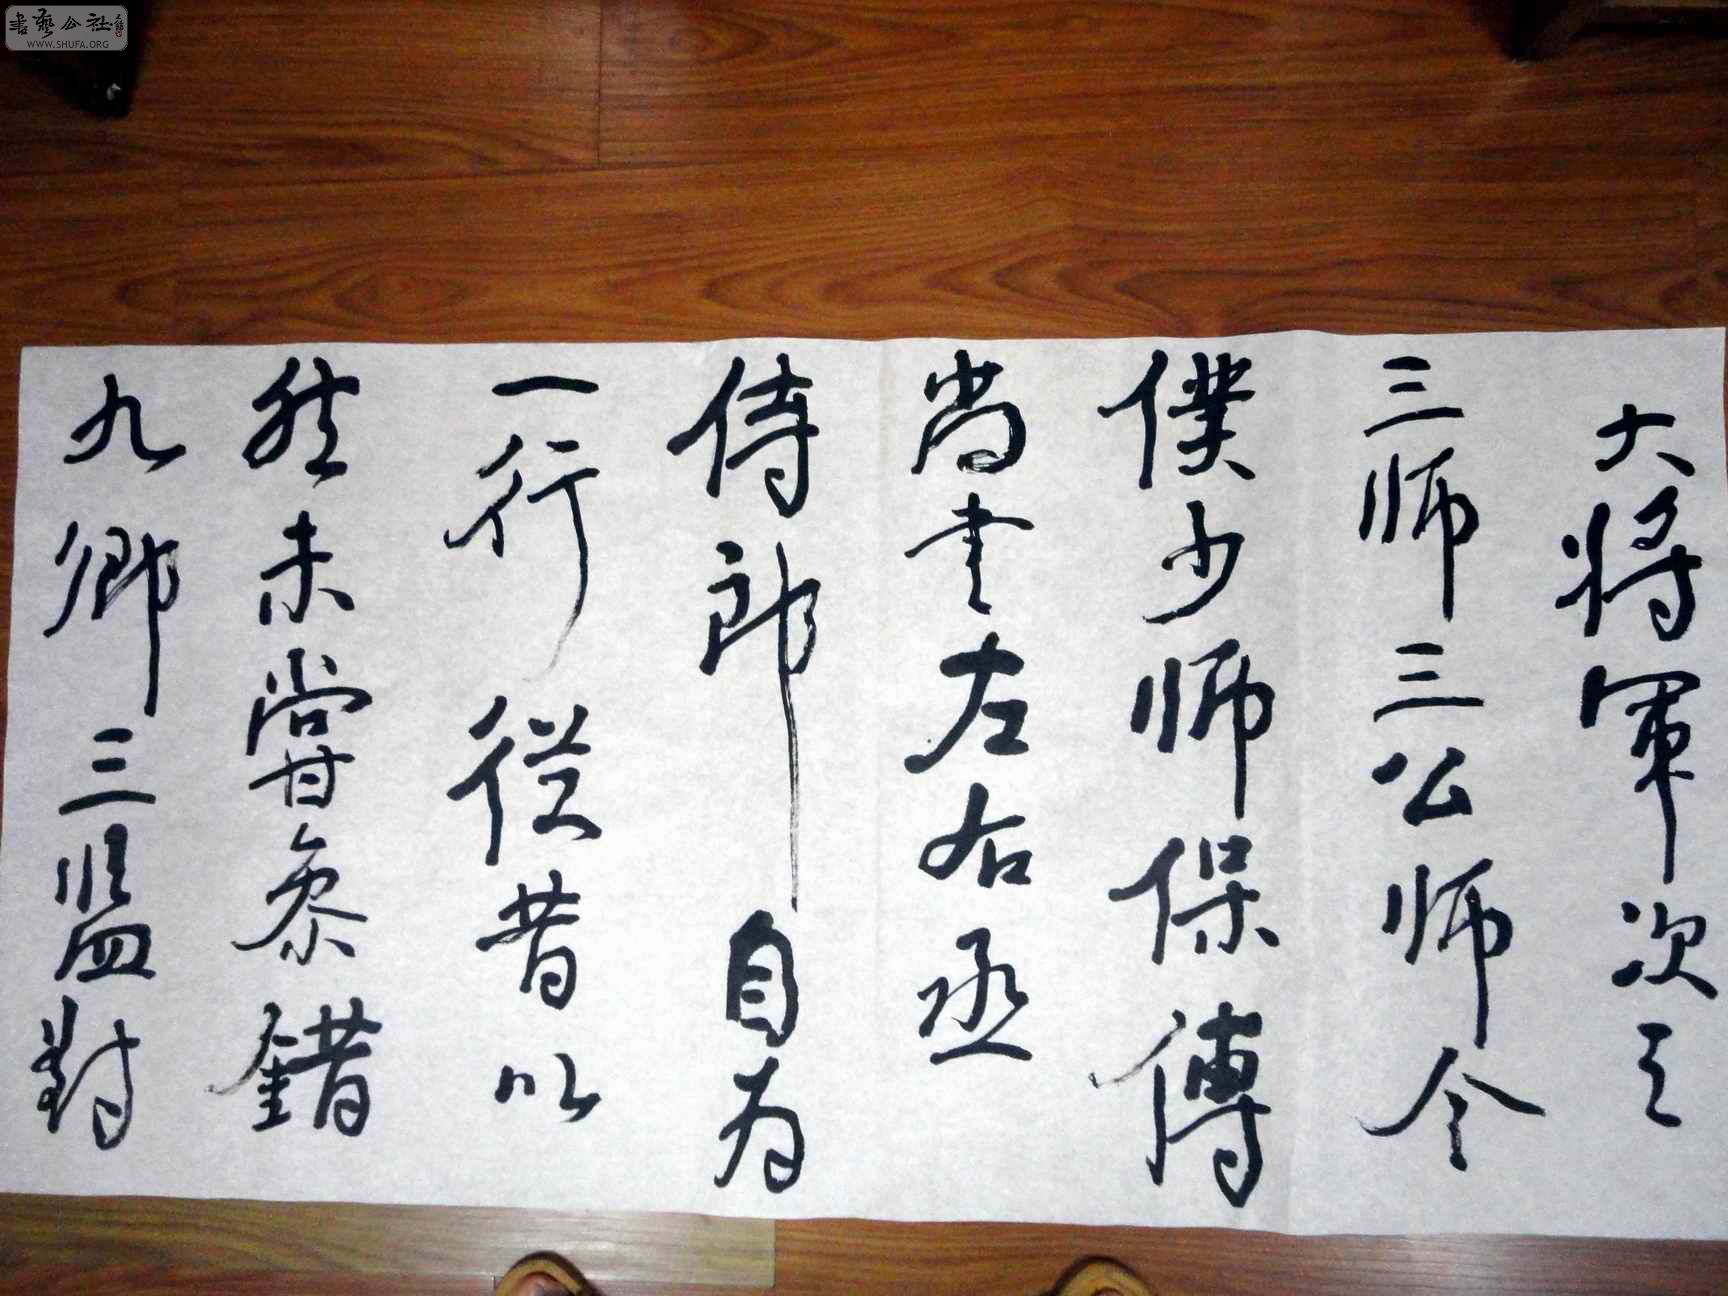 大将軍次之
三师三公师令
僕少师保傅
尚书左右丞
侍郎自为
一行從昔以
然未嘗参錯
九卿三监對
書藝公社
WWW.SHUFA.ORG